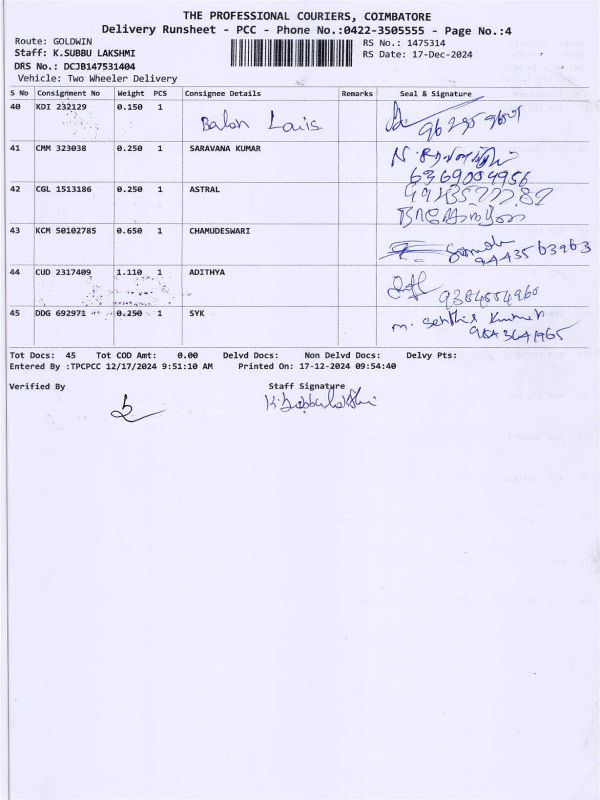 THE PROFESSIONAL COURIERS, COIMBATORE
Delivery Runsheet - PCC - Phone No.:0422-3505555 - Page No.:4
Route: GOLDWIN RS No.: 1475314
Staff: K.SUBBU LAKSHMI RS Date: 17-Dec-2024
DRS No.: DCJB147531404
Vehicle: Two Wheeler Delivery
S No Consignment No Weight PCS Consignee Details Remarks Seal & Signature
40 KDI 232129 0.150 1
41 CMM 323038 0.250 1 SARAVANA KUMAR
6369004956
42 CGL 1513186 0.250 1 ASTRAL
43 KCM 50102785 0.650 1 CHAMUDESWARI
9443563963
44 CUD 2317409 1.110 1 ADITHYA
9384554960
45 DDG 692971 0.250 1 SYK
m. Senthil Kumar
9843641965
Tot Docs: 45 Tot COD Amt: 0.00 Delvd Docs: Non Delvd Docs: Delvy Pts:
Entered By :TPCPCC 12/17/2024 9:51:10 AM Printed On: 17-12-2024 09:54:40
Verified By Staff Signature
K.Subbulakshmi